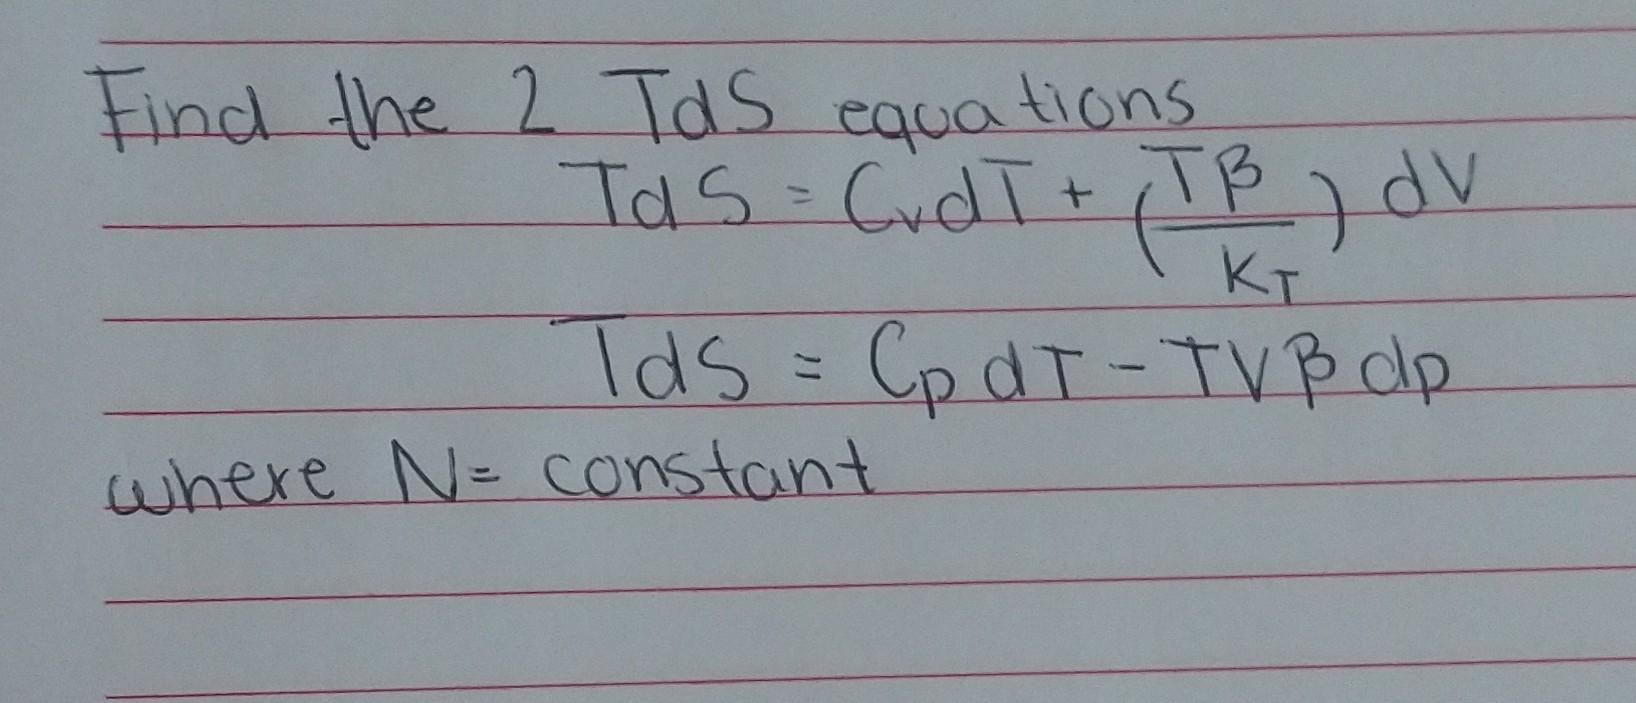 Find the 2 TdS equations
TdS = CvdT + (Tβ/KT) dV
TdS = Cp dT - TVβ dp
where N = constant